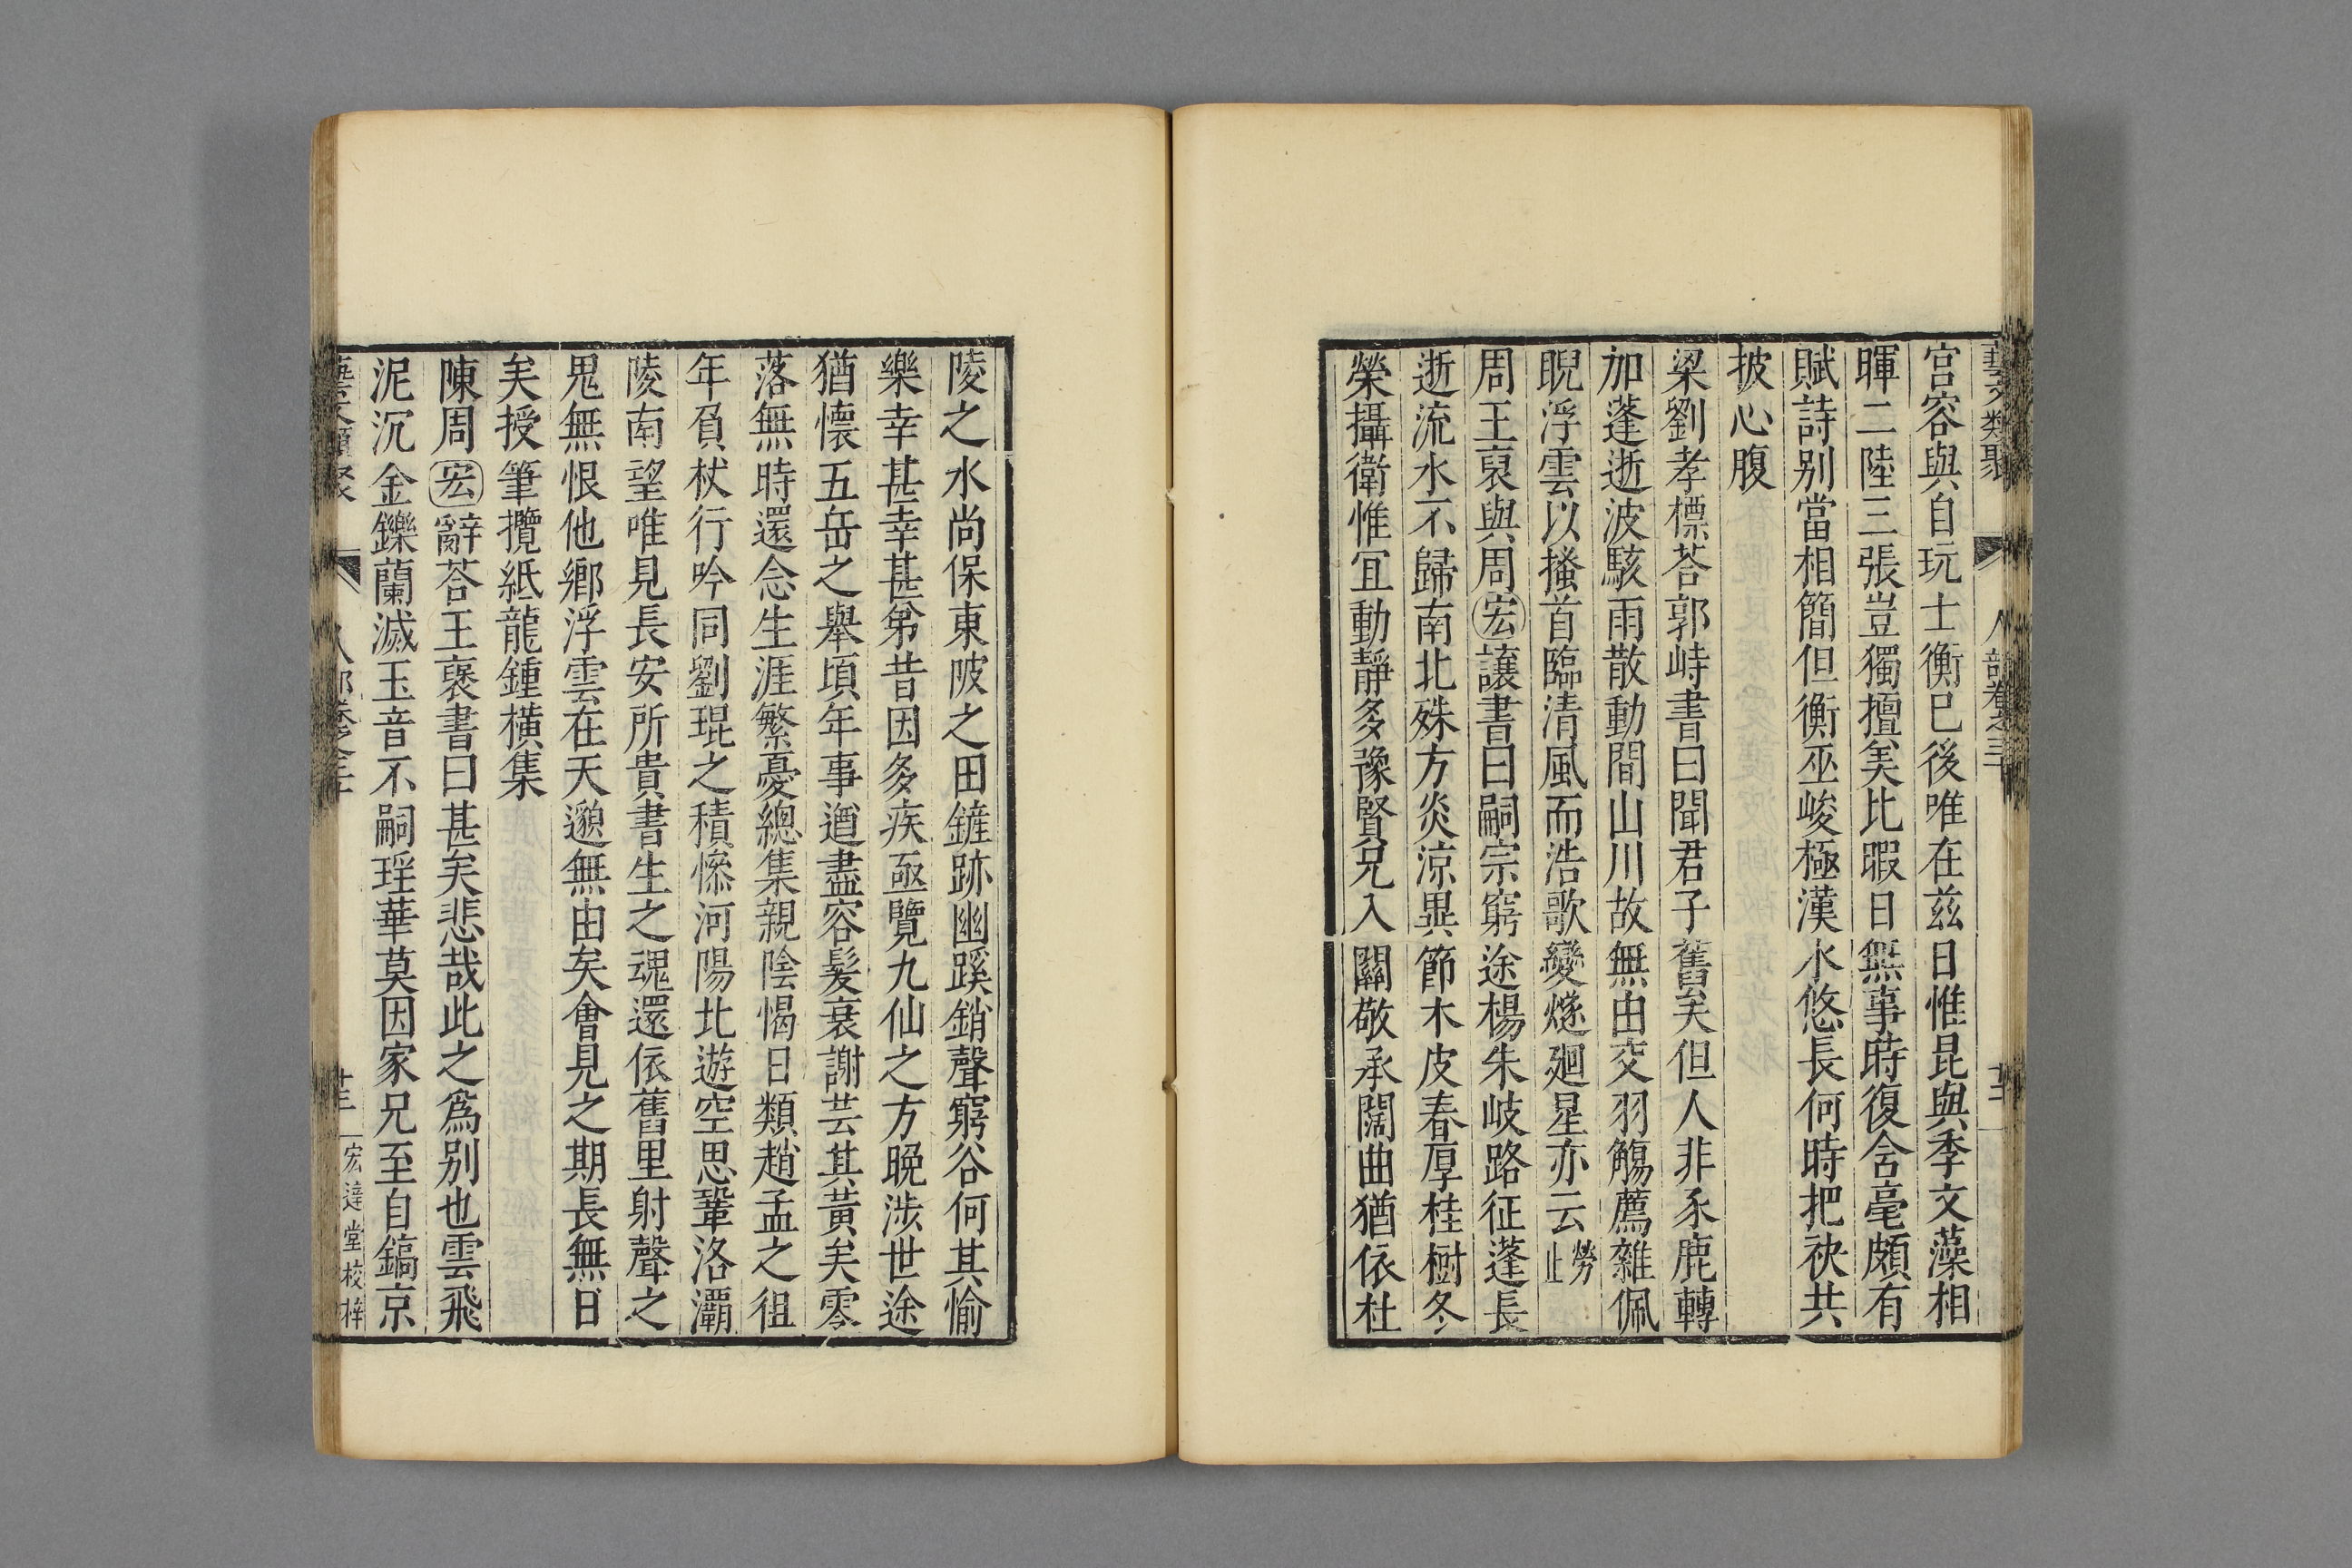 藝文類聚 人部卷之三十 廿二
宮容與自玩士衡已後唯在茲日惟昆與季文藻相
暉二陸三張豈獨擅美比暇日無事時復含毫頗有
賦詩别當相簡但衡巫峻極漢水悠長何時把袂共
披心腹
梁劉孝標荅郭峙書曰聞君子舊矣但人非豕鹿轉
加蓬逝波駭雨散動間山川故無由交羽觴薦雜佩
睨浮雲以搔首臨清風而浩歌變燧廻星亦云勞止
周王裒與周宏讓書曰嗣宗窮途楊朱岐路征蓬長
逝流水不歸南北殊方炎涼異節木皮春厚桂樹冬
榮攝衛惟宜動靜多豫賢兄入關敬承闊曲猶依杜
陵之水尚保東陂之田鏟跡幽蹊銷聲窮谷何其愉
樂幸甚幸甚弟昔因多疾亟覽九仙之方晚涉世途
猶懷五岳之舉頃年事遒盡容髮衰謝芸其黃矣零
落無時還念生涯繁憂總集親陰愒日類趙孟之徂
年負杖行吟同劉琨之積慘河陽北遊空思鞏洛灞
陵南望唯見長安所貴書生之魂還依舊里射聲之
鬼無恨他鄉浮雲在天邈無由矣會見之期長無日
矣授筆攬紙龍鍾橫集
陳周宏辭荅王褒書曰甚矣悲哉此之爲别也雲飛
泥沉金鑠蘭滅玉音不嗣瑶華莫因家兄至自鎬京
藝文類聚 人部卷之三十 廿三 宏達堂校梓